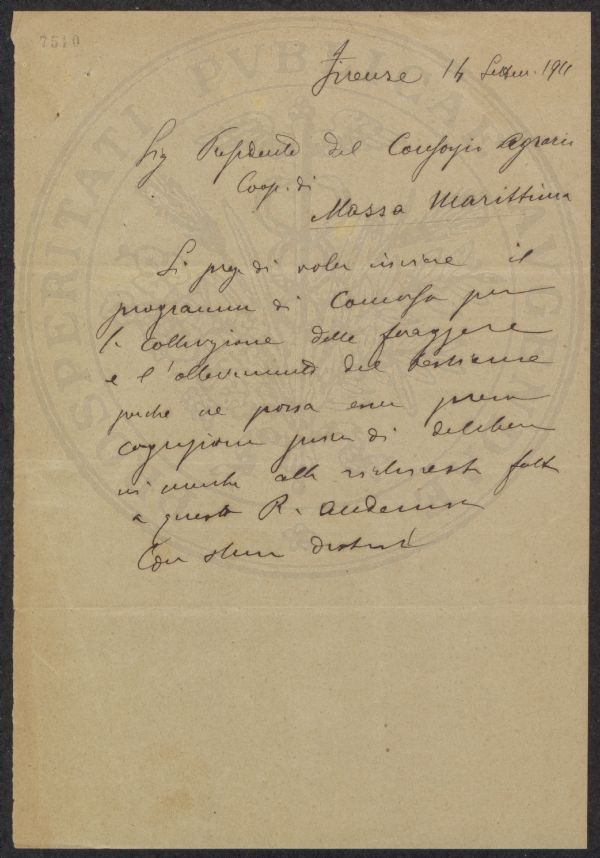 7510
PROSPERITATI PVBLICAE AVGENDAE
Firenze 14 Settem. 1911
Sig Presidente del Consorzio Agrario
Coop. di
Massa Marittima
Si prega di voler inviare il
programma di Concorso per
la coltivazione delle foraggere
e l'allevamento del bestiame
perché ne possa esser presa
cognizione prima di deliberare
in merito alla richiesta fatta
a questa R. Accademia
Con stima distinta